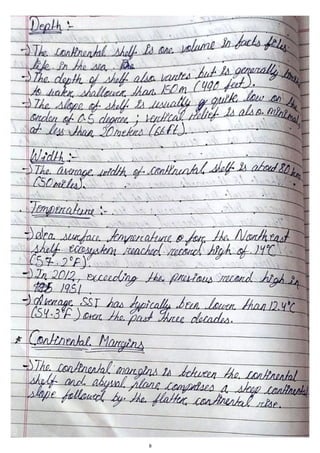 Depth :-
-) The continental shelf is one volume in facts of its
life in the sea
-) The depth of shelf also varies but is generally
to water shallower than 150m (490 feet).
-) The slope of shelf is usually quite low on the
order of 0.5 degree ; vertical relief is also minimal
at less than 20 meters (66ft).
Width :-
-) The average width of continental shelf is about 80 km
(50 miles).
Temperature :-
-) Sea surface temperature for the Northeast
shelf ecosystem reached record high of 14°C
(57.2°F).
-) In 2012, exceeding the previous record high in
1951
-) Average SST has typically been lower than 12.4°C
(54.3°F) over the past three decades.
* Continental Margins
-) The continental margins is between the continental
shelf and abyssal plane comprises a steep continental
slope followed by the flatter continental rise.
8